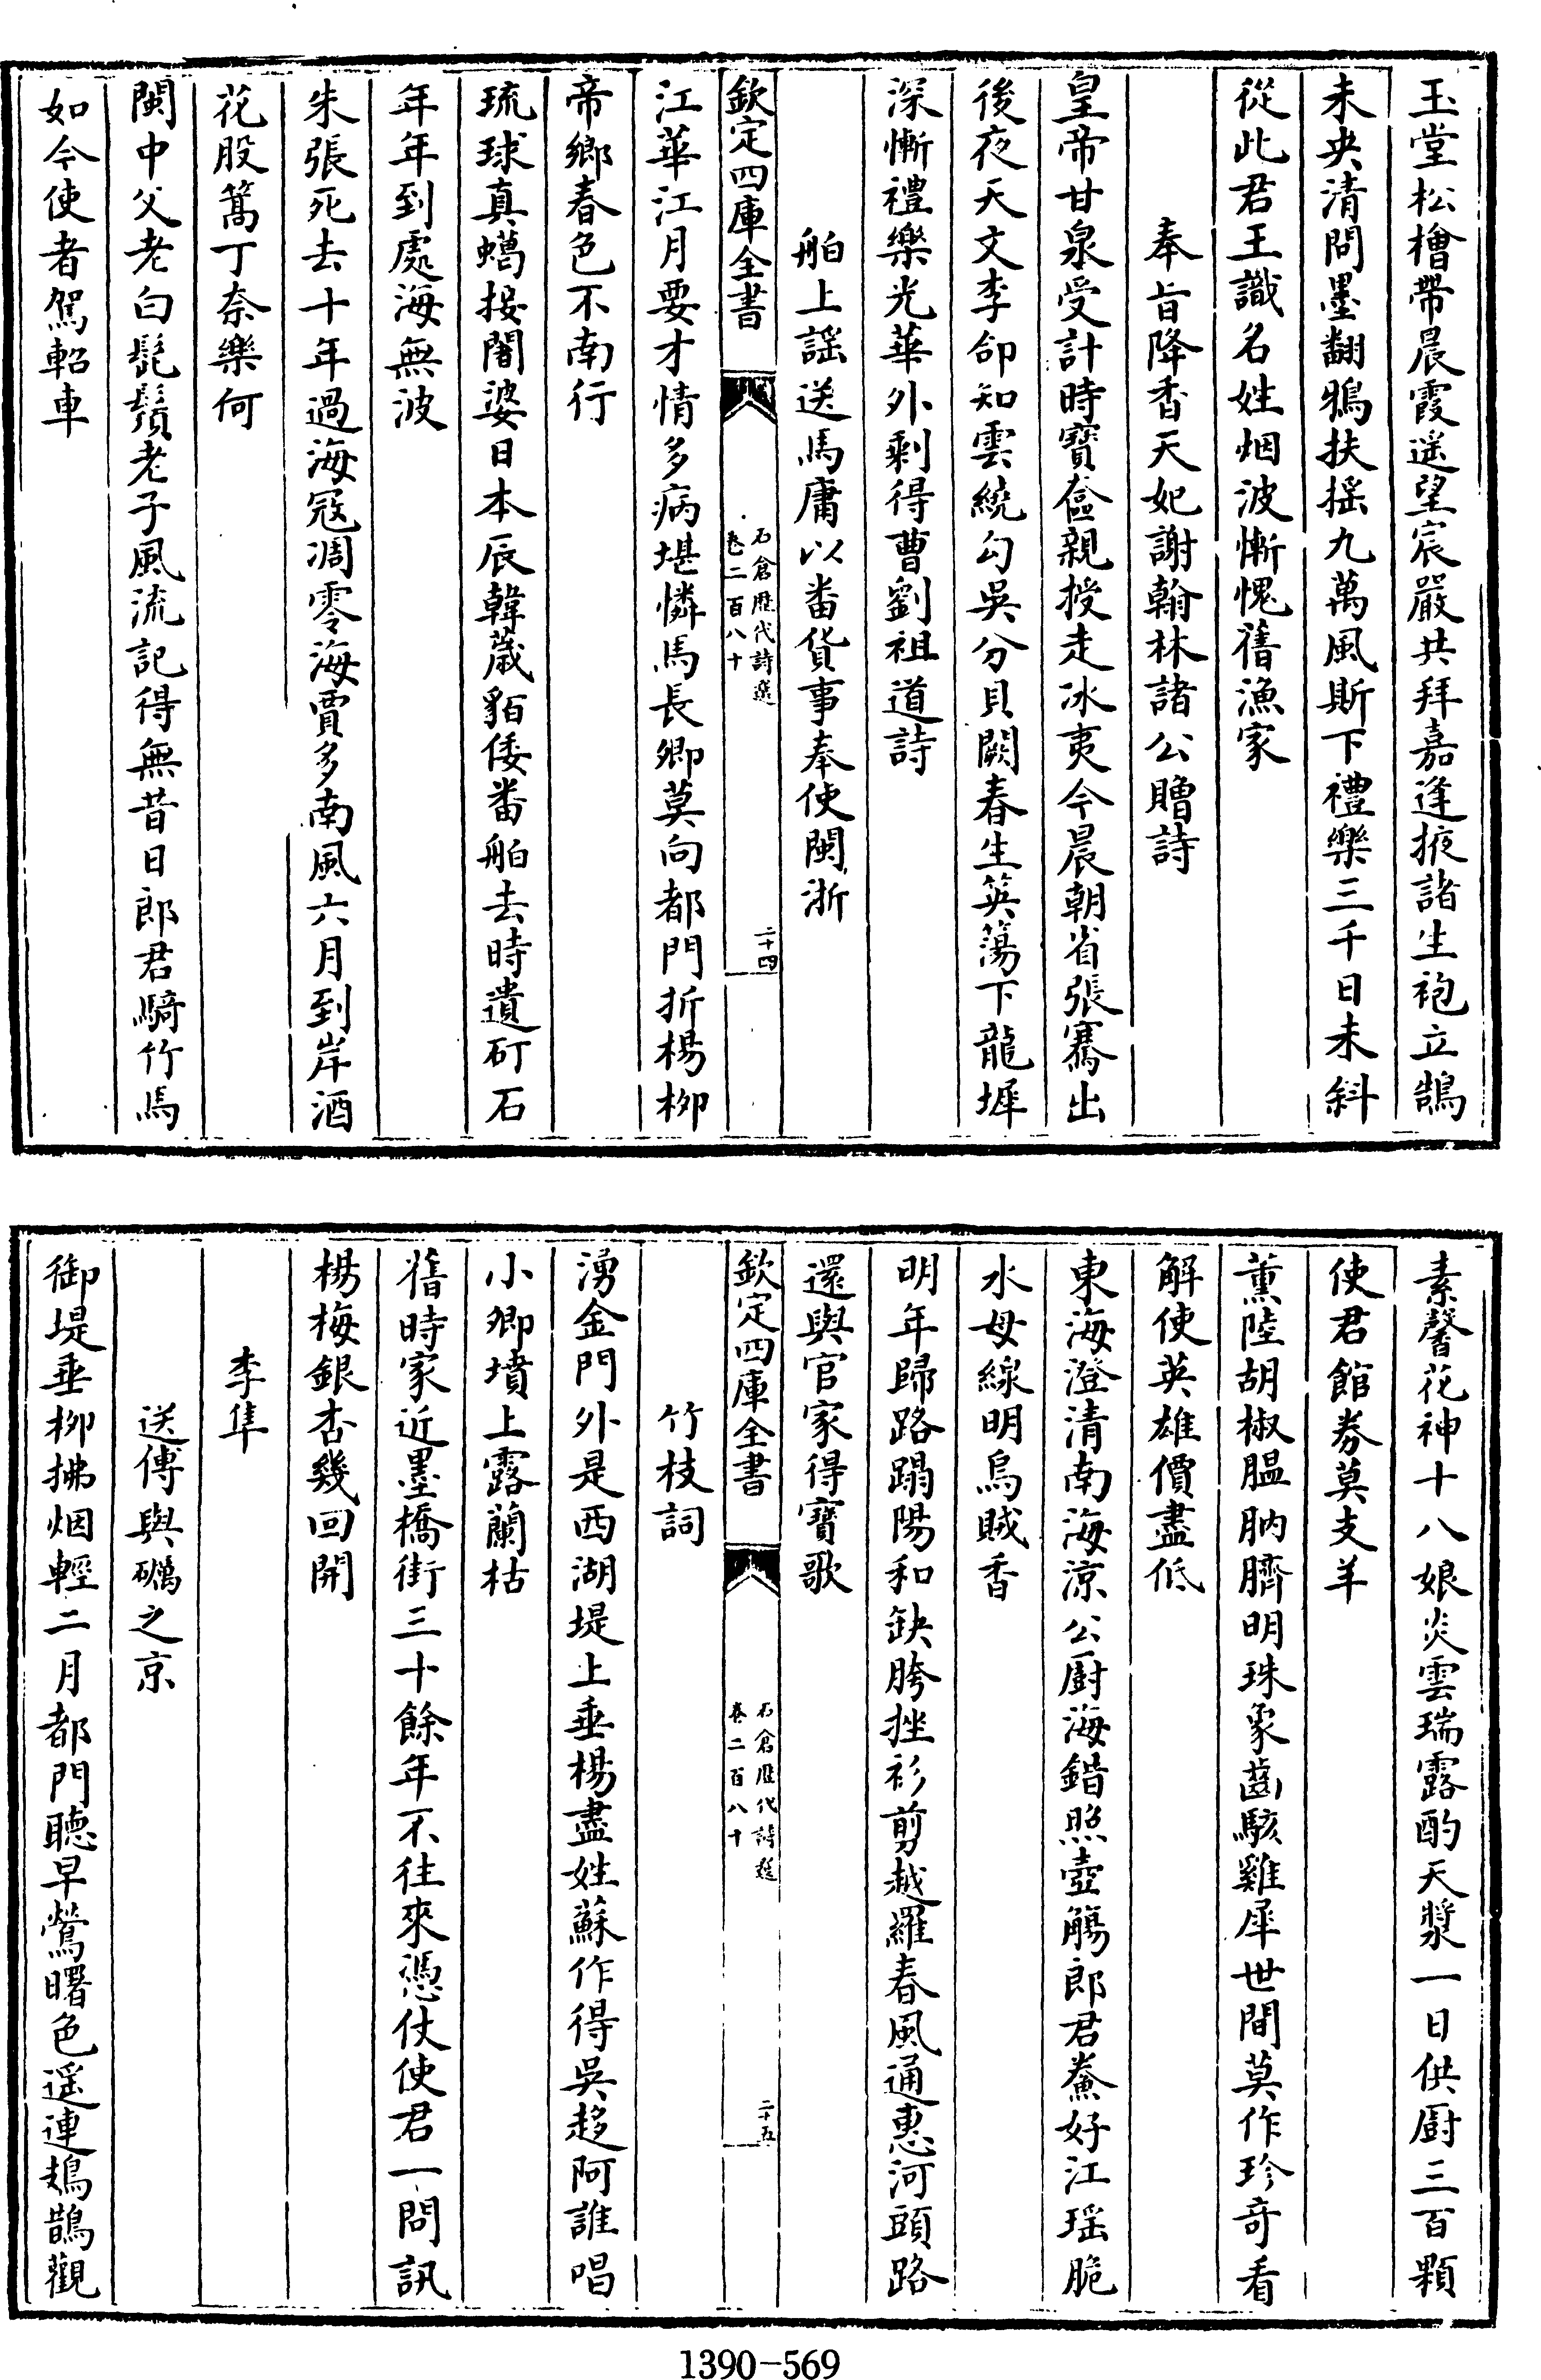 玉堂松檜帶晨霞遥望宸嚴共拜嘉逢掖諸生袍立鵠
未央清問墨翻鴉扶摇九萬風斯下禮樂三千日未斜
從此君王識名姓烟波慚愧舊漁家
奉旨降香天妃謝翰林諸公贈詩
皇帝甘泉受計時寶奩親授走冰夷今晨朝省張騫出
後夜天文李郃知雲繞勾吳分貝闕春生英蕩下龍墀
深慚禮樂光華外剩得曹劉祖道詩
舶上謡送馬庸以番貨事奉使閩浙
欽定四庫全書
石倉歷代詩選
卷二百八十
二十四
江華江月要才情多病堪憐馬長卿莫向都門折楊柳
帝鄉春色不南行
琉球真蠟接闍婆日本辰韓薉貊倭番舶去時遺矴石
年年到處海無波
朱張死去十年過海寇凋零海賈多南風六月到岸酒
花股篙丁奈樂何
閩中父老白髭鬚老子風流記得無昔日郎君騎竹馬
如今使者駕軺車
素馨花神十八娘炎雲瑞露酌天漿一日供厨三百顆
使君館券莫支羊
薰陸胡椒膃肭臍明珠象齒駭雞犀世間莫作珍奇看
解使英雄價盡低
東海澄清南海涼公厨海錯照壺觴郎君鮝好江瑶脆
水母線明烏賊香
明年歸路蹋陽和缺胯挫衫剪越羅春風通惠河頭路
還與官家得寶歌
欽定四庫全書
石倉歷代詩選
卷二百八十
二十五
竹枝詞
湧金門外是西湖堤上垂楊盡姓蘇作得吳趍阿誰唱
小卿墳上露蘭枯
舊時家近墨橋街三十餘年不往來憑仗使君一問訊
楊梅銀杏幾回開
李隼
送傅與礪之京
御堤垂柳拂烟輕二月都門聽早鶯曙色遥連鳷鵲觀
1390-569